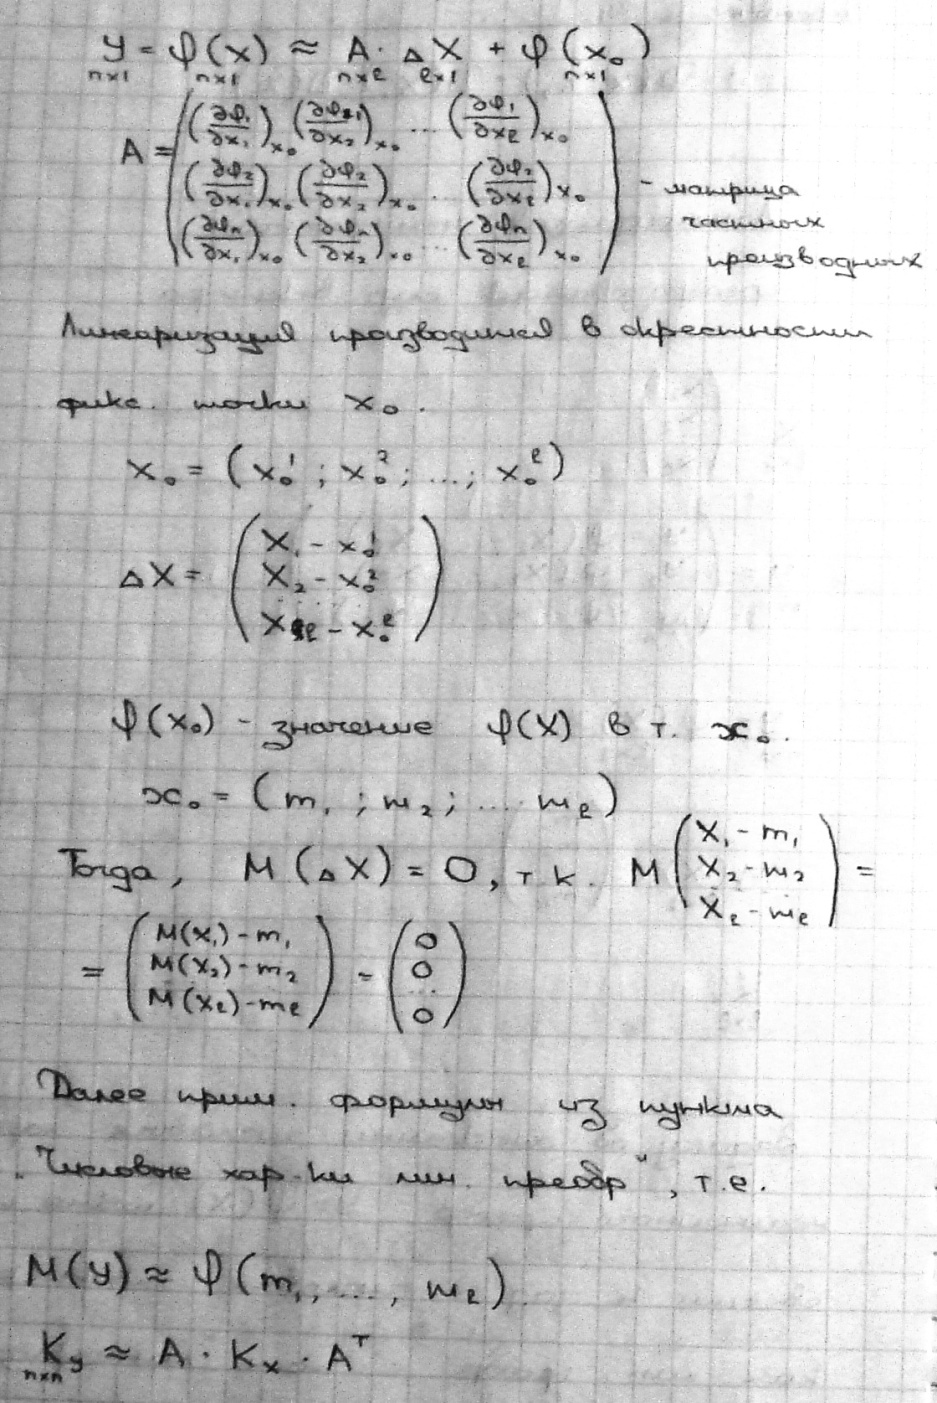 y = φ(x) ≈ A · ΔX + φ(x₀)
n×1 n×1 n×ℓ ℓ×1 n×1
A = ((∂φ₁/∂x₁)x₀ (∂φ₁/∂x₂)x₀ ... (∂φ₁/∂xℓ)x₀
(∂φ₂/∂x₁)x₀ (∂φ₂/∂x₂)x₀ .. (∂φ₂/∂xℓ)x₀
(∂φn/∂x₁)x₀ (∂φn/∂x₂)x₀ ... (∂φn/∂xℓ)x₀) - матрица
частных
производных
Линеаризация производится в окрестности
фикс. точки x₀.
x₀ = (x₀¹; x₀²; ...; x₀ℓ)
ΔX = (X₁ - x₀¹
X₂ - x₀²
......
Xℓ - x₀ℓ)
φ(x₀) - значение φ(X) в т. x₀.
x₀ = (m₁; m₂; ... mℓ)
Тогда, M(ΔX) = 0, т к. M(X₁ - m₁
X₂ - m₂
Xℓ - mℓ) =
= (M(X₁) - m₁
M(X₂) - m₂
M(Xℓ) - mℓ) = (0
0
..
0)
Далее прим. формулы из пункта
"Числовые хар-ки лин. преобр", т.е.
M(y) ≈ φ(m₁, ..., mℓ)
Ky ≈ A · Kx · Aᵀ
n×n